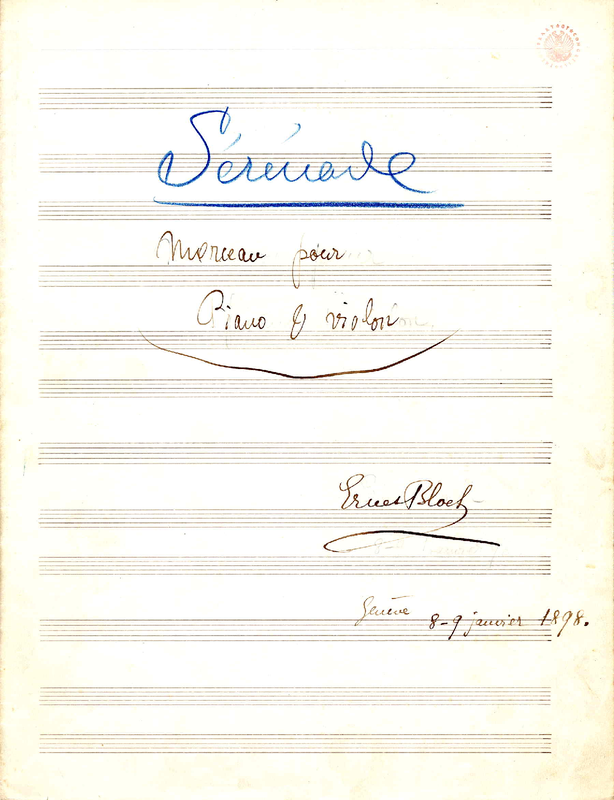 Sérénade
Morceau pour
Piano & violon
Ernest Bloch
Genève 8-9 janvier 1898.